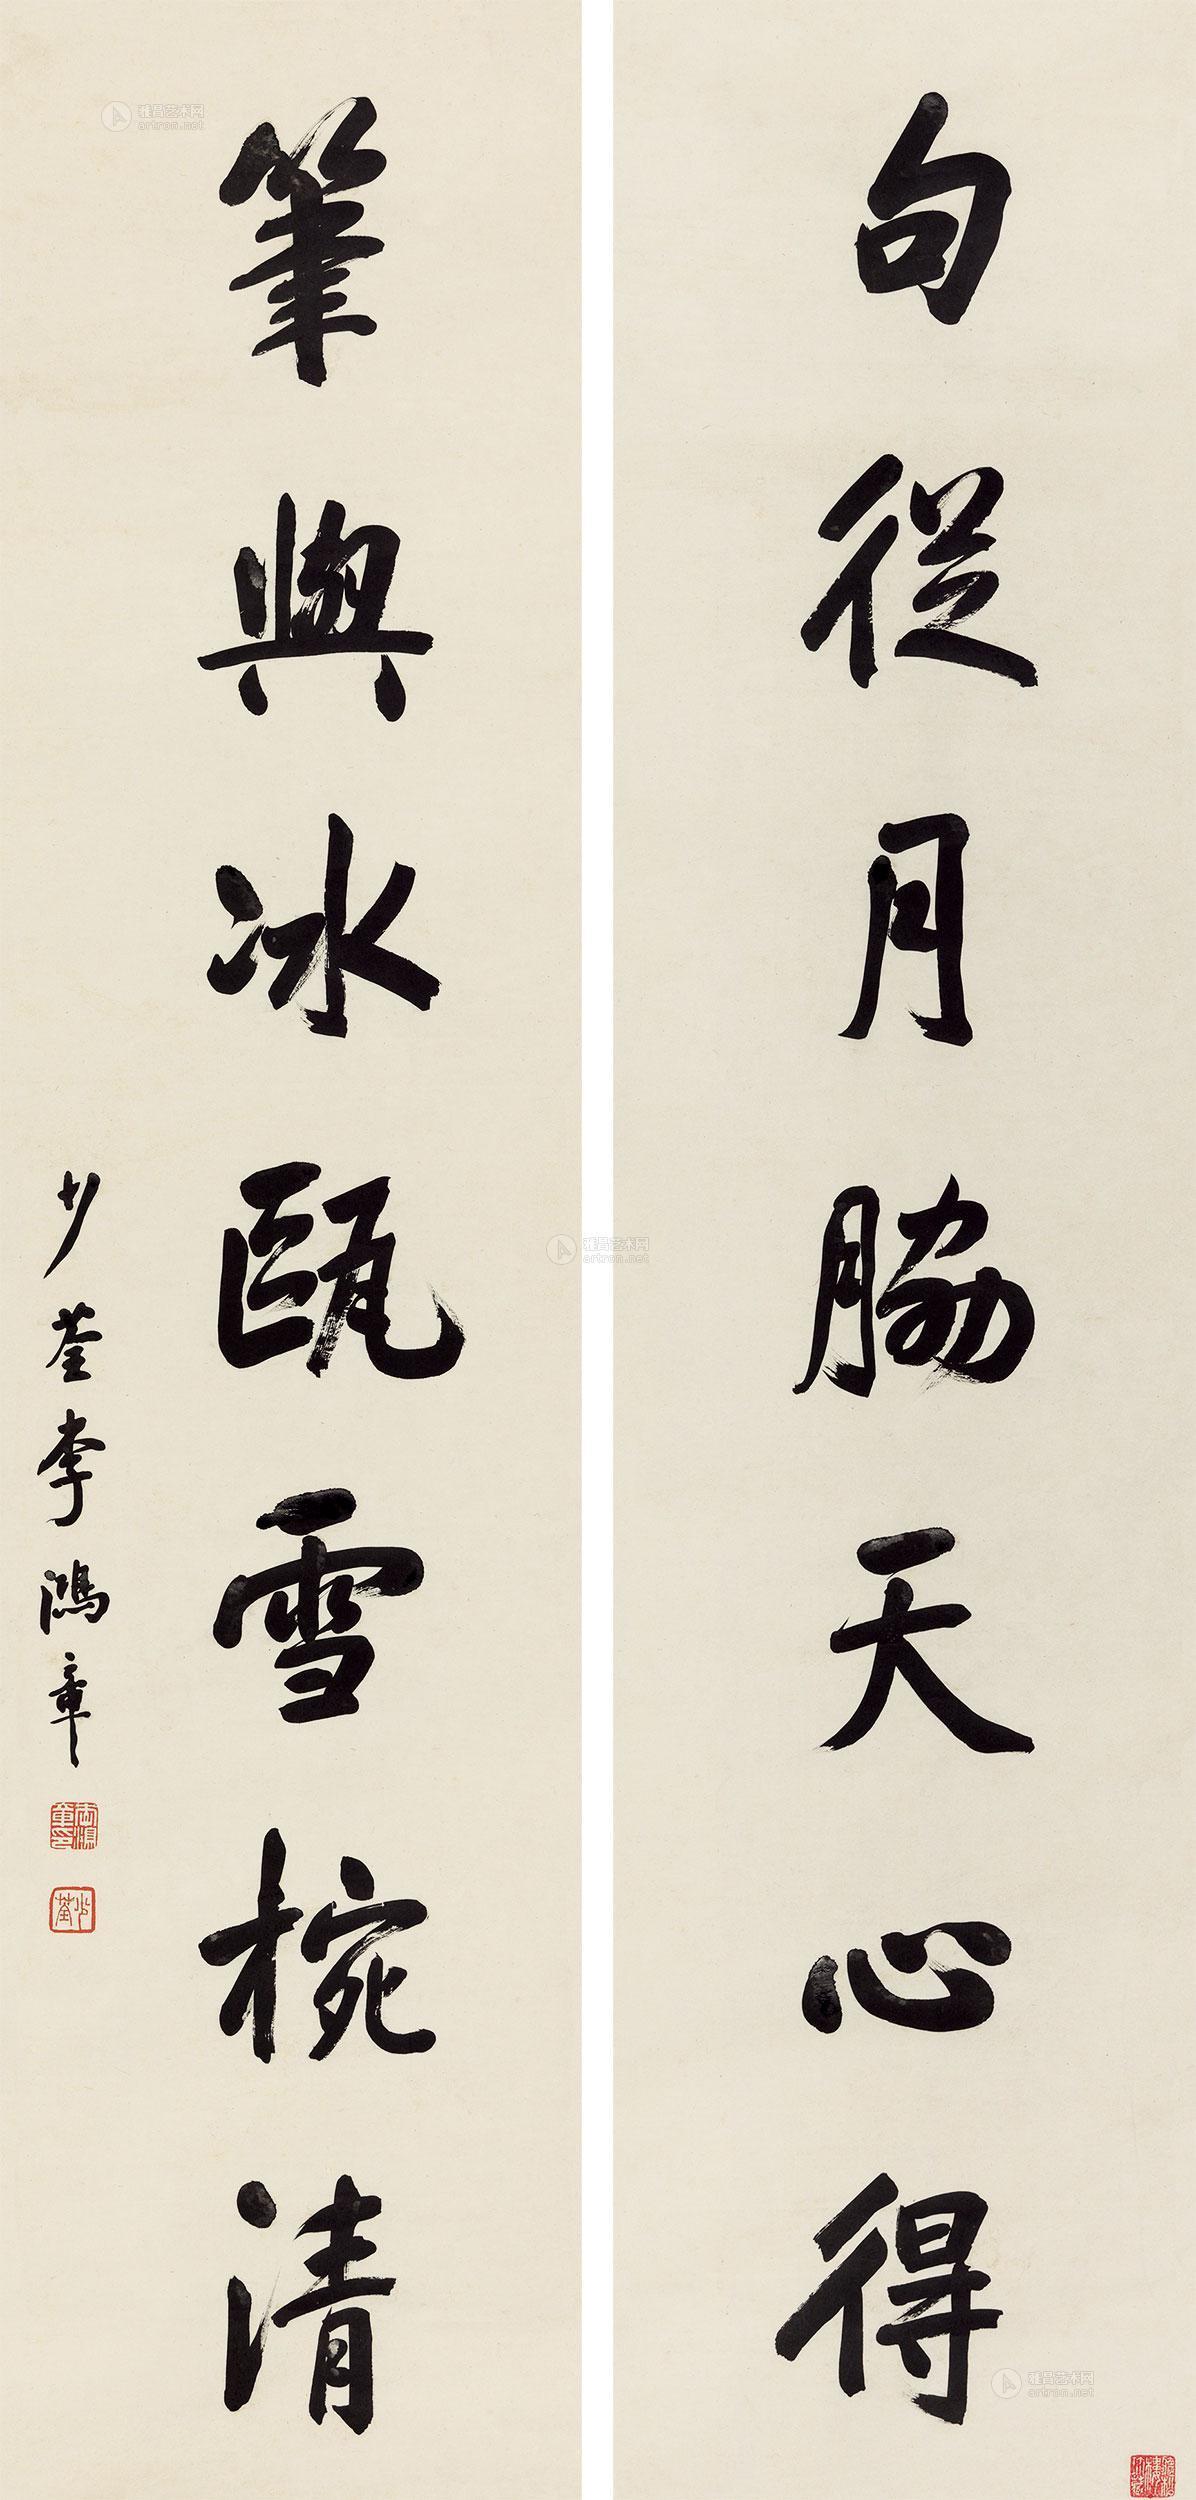 句從月脇天心得
筆與冰甌雪椀清
少荃李鴻章
少荃
雅昌艺术网
artron.net
雅昌艺术网
artron.net
雅昌艺术网
artron.net